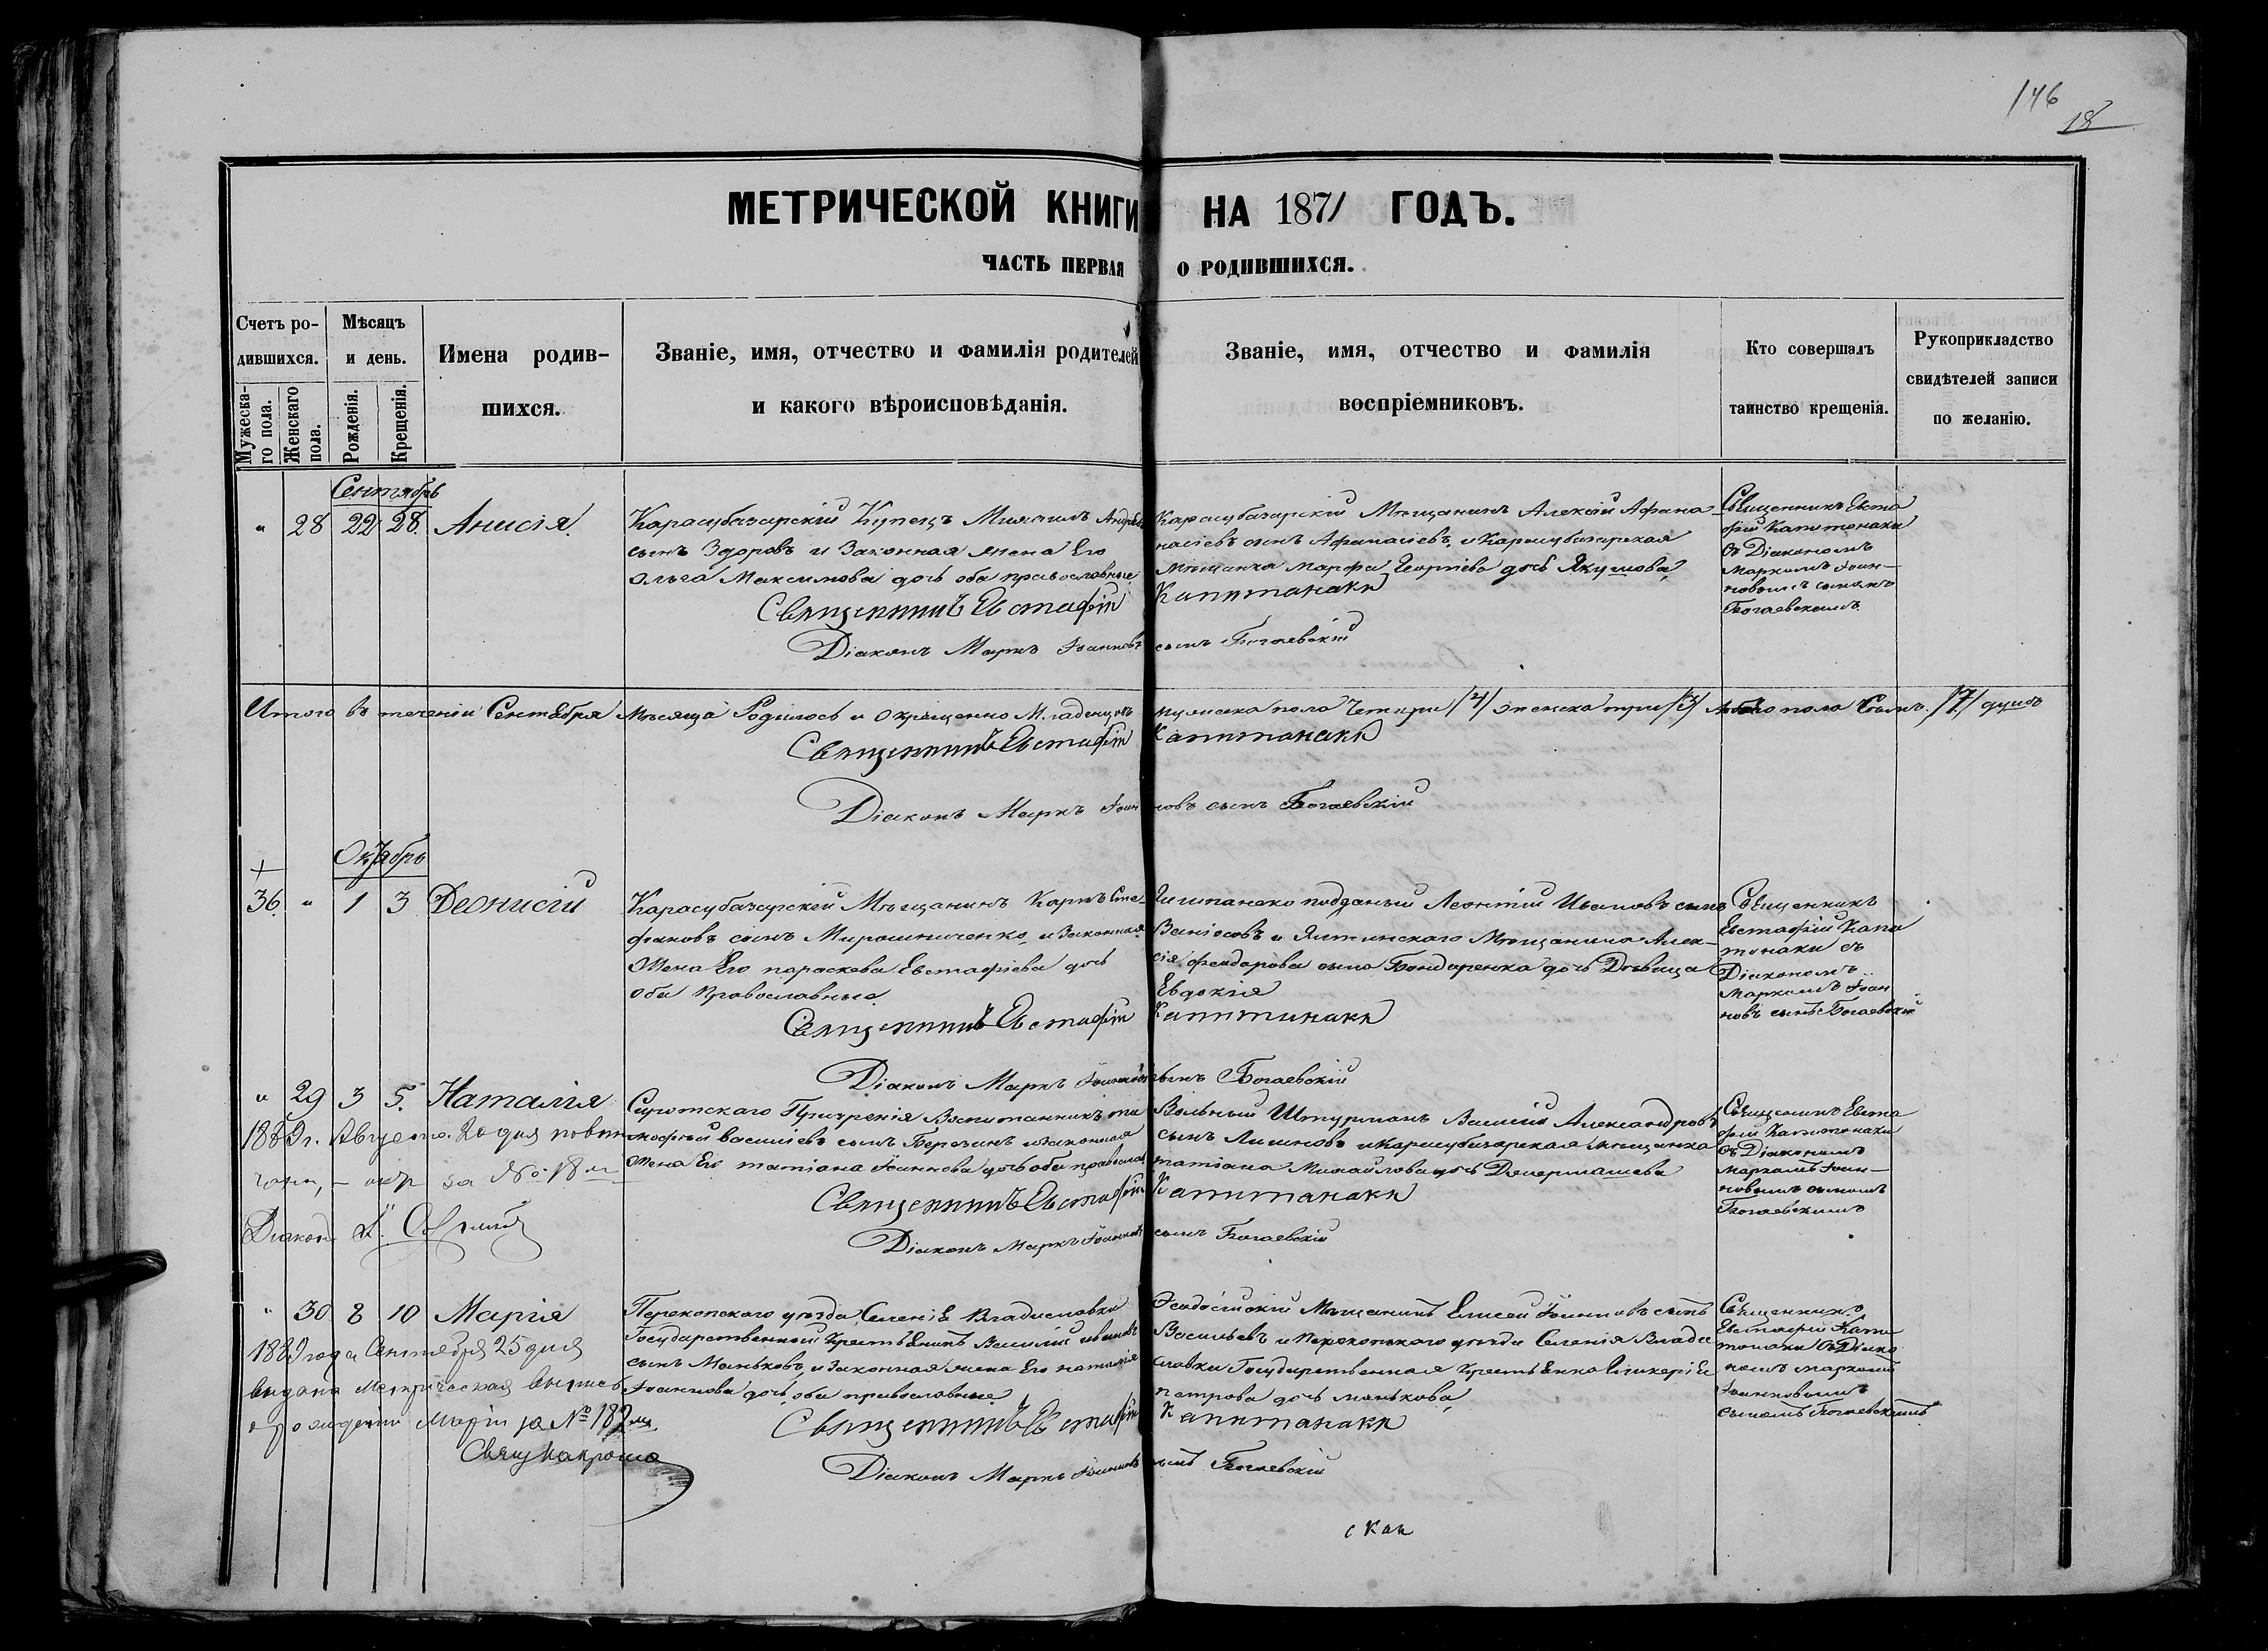 146
18
МЕТРИЧЕСКОЙ КНИГИ НА 1871 ГОДЪ.
ЧАСТЬ ПЕРВАЯ О РОДИВШИХСЯ.
Счетъ ро-
дившихся.
Мужеска-
го пола.
Женскаго
пола.
Мѣсяцъ
и день.
Рожденія.
Крещенія.
Имена родив-
шихся.
Званіе, имя, отчество и фамилія родителей
и какого вѣроисповѣданія.
Званіе, имя, отчество и фамилія
воспріемниковъ.
Кто совершалъ
таинство крещенія.
Рукоприкладство
свидѣтелей записи
по желанію.
Сентябрь
" 28 22 28. Анисія.
Карасубазарскій Купецъ Михаилъ Андреевъ
сынъ Здоровъ и Законная жена Его
Ольга Максимова дочь оба православные
Карасубазарскій Мѣщанинъ Алексій Афана-
насіевъ сынъ Афанасіевъ, и Карасубазарская
Мѣщанка Марфа Георгіева дочь Якушова,
Священникъ Евста
фій Капитонаки
съ Діакономъ
Маркомъ Іоан-
новымъ сыномъ
Богаевскимъ.
Священникъ Евстафій Капитанаки
Діаконъ Маркъ Іоанновъ сынъ Богаевскій
Итого въ теченіи Сентября Мѣсяца Родилось и окрещенно Младенцовъ мужеска пола Четыри /4/ женска три /3/ пола Семь. /7/ душъ
Священникъ Евстафій Капитанаки
Діаконъ Маркъ Іоанновъ сынъ Богаевскій
Октябрь
+
36. " 1 3 Деонисій
Карасубазарскій Мѣщанинъ Карпъ Сте-
фановъ сынъ Мирошниченко, и Законная
Жена Его параскева Евстафіева дочь
оба Православные.
подданый Леонтій Ивановъ сынъ
и Ялтинскаго Мѣщанина Алек-
сія феодарова сына Бондаренка дочь Дѣвица
Евдокія
Священникъ
Евстафій Капи
тонаки съ
Діакономъ
Маркомъ Іоан
новъ сынъ Богаевскій
Священникъ Евстафій Капитинаки
Діаконъ Маркъ Іоанновъ сынъ Богаевскій
" 29 3 5. Наталія
Сиротскаго Призренія Воспитанникъ ти
мофѣй василіевъ сынъ Березинъ и законная
Жена Его татіана Іоаннова дочь оба православ
Вольный Штурманъ Василій Александровъ
сынъ и Карасубазарская мѣщанка
татіана Михайлова дочь
Священникъ Евста
фій Капитонаки
съ Діакономъ
Маркомъ Іоан-
новымъ сыномъ
Богаевскимъ
1889 г. Августа 20 дня
за № 18
Діаконъ
Священникъ Евстафій Капитанаки
Діаконъ Маркъ Іоанновъ сынъ Богаевскій
" 30 8 10 Марія
Перекопскаго уѣзда Селеніе Владиславки
Государственный Крестьянинъ Василій ивановъ
сынъ Маньковъ, и Законная жена Его наталія
Іоаннова дочь, оба православные.
Ѳеодосійскій Мѣщанинъ Елисей Іоанновъ сынъ
Васильевъ и Перекопскаго уѣзда Селенія Влади
славки Государственная Крестьянка Гликерія
петрова дочь манькова,
Священникъ
Евстафій Капи
тонаки съ Діако
номъ маркомъ
Іоанновымъ
сыномъ Богаевскимъ
1889 года Сентября 25 дня
выдана Метрическая выпись
о рожденіи Маріи за № 182
Священникъ Евстафій Капитанаки
Діаконъ Маркъ Іоанновъ сынъ Богаевскій
скан